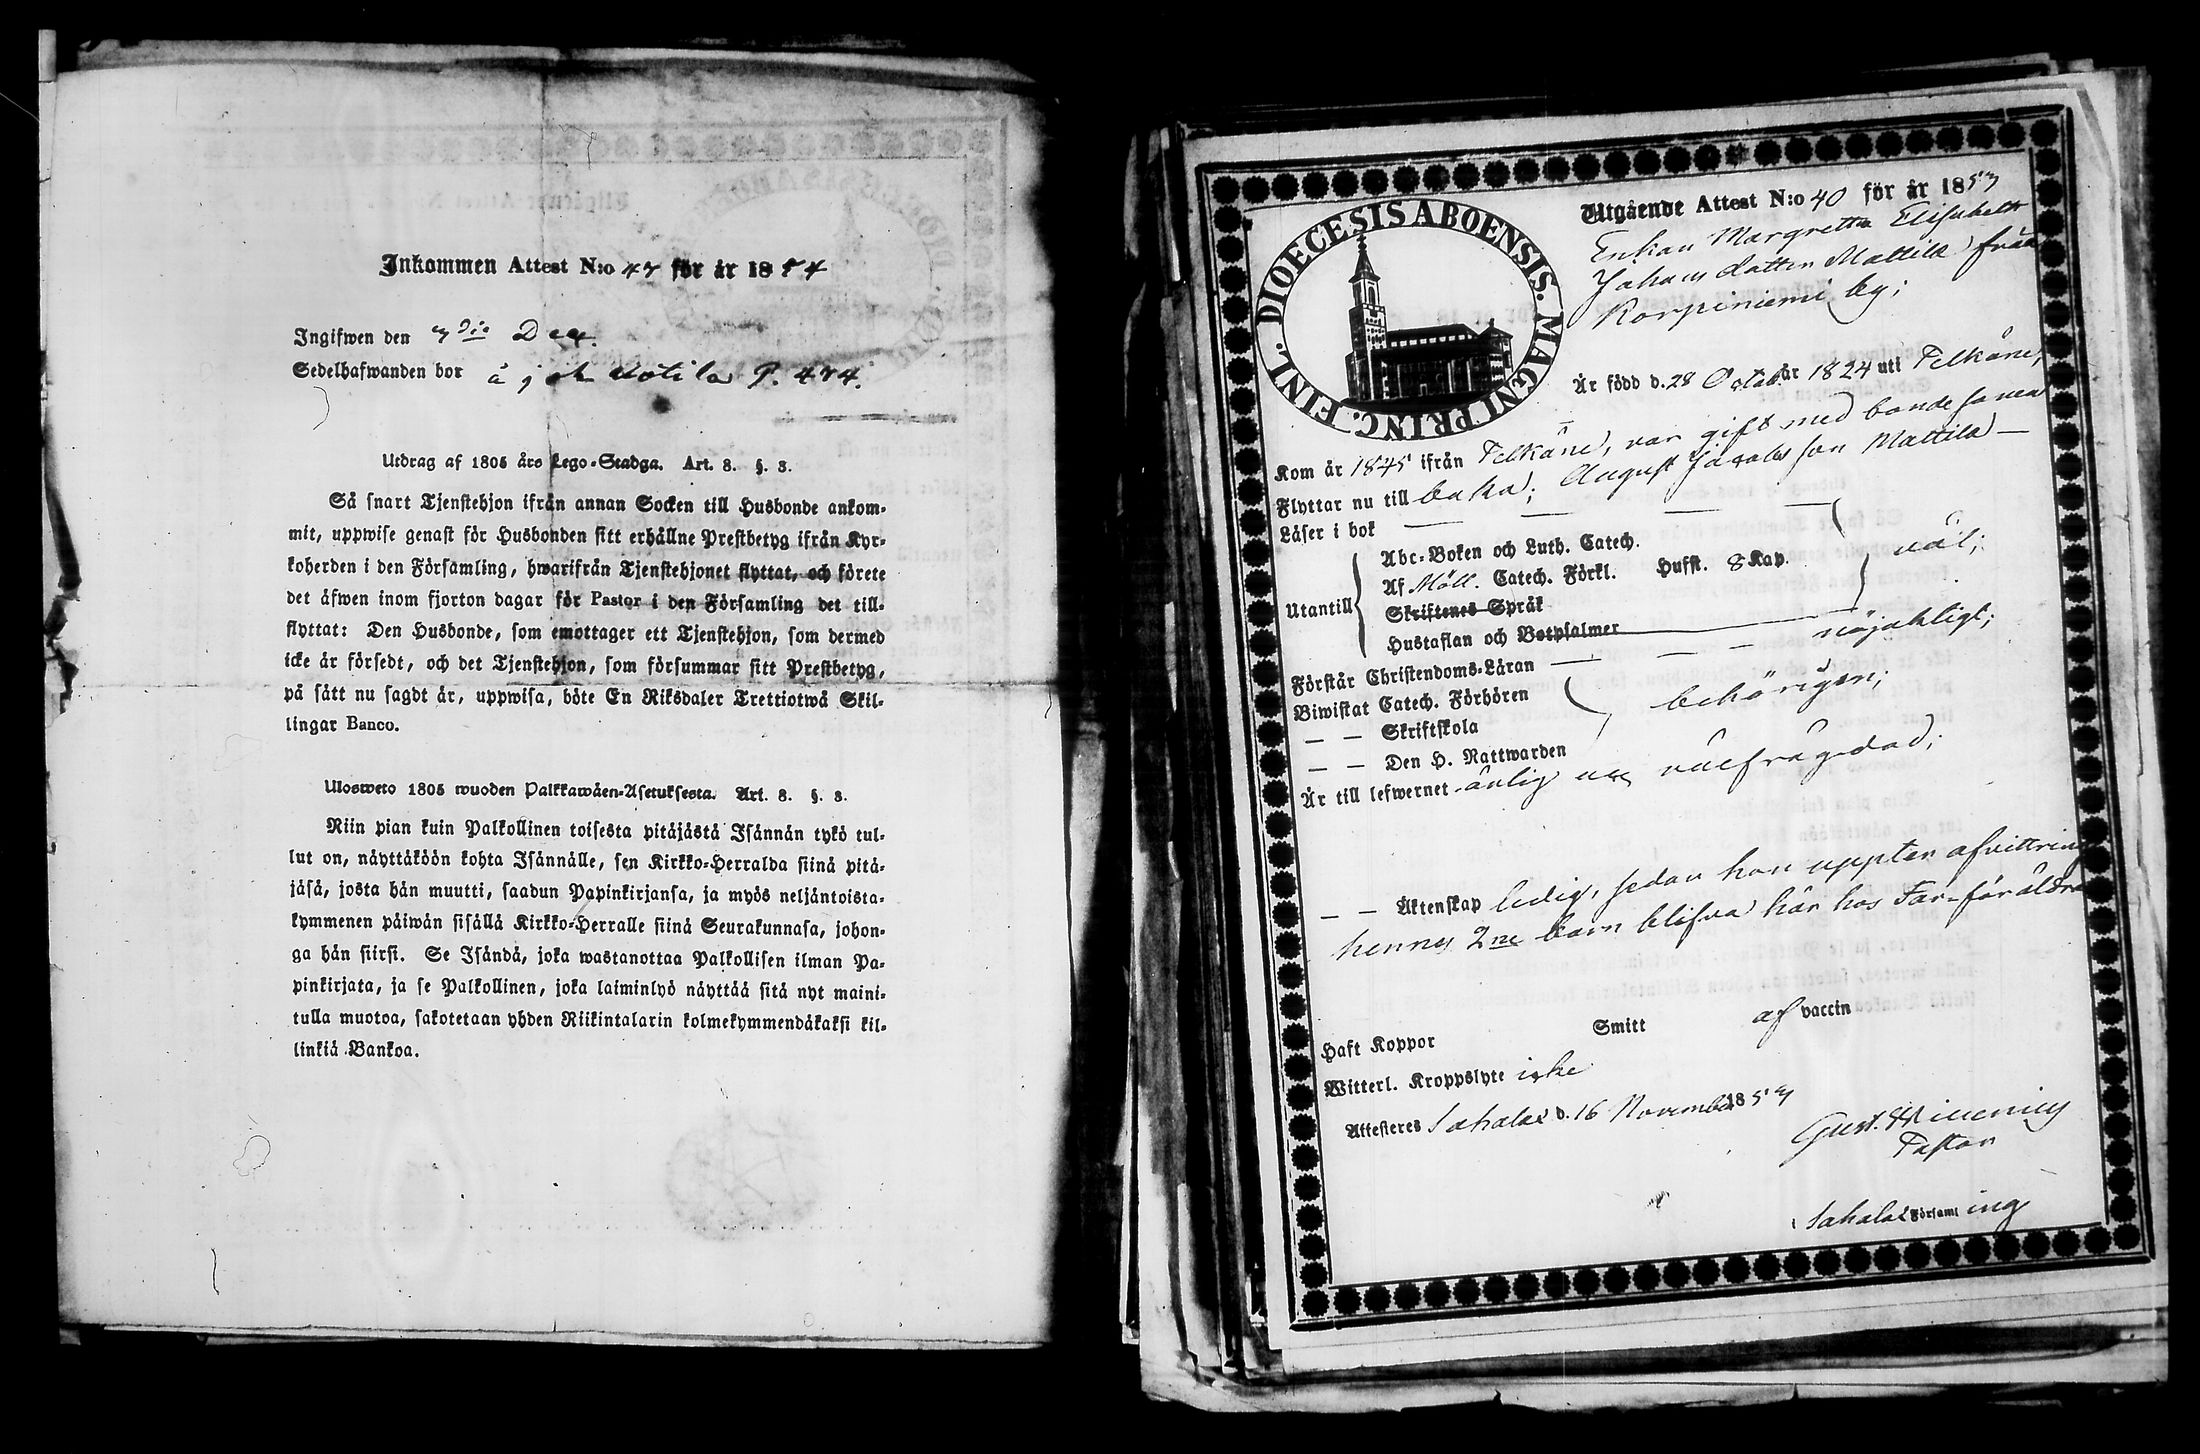 Inkommen Attest N:o 47 för år 1854
Ingifwen den 7die Dec.
Sedelhafwanden bor å P. 474.
Utdrag af 1805 års Lego-Stadga. Art. 8. §. 3.
Så snart Tjenstehjon ifrån annan Socken till Husbonde ankom-
mit, uppwise genast för Husbonden sitt erhållne Prestbetyg ifrån Kyr-
koherden i den Församling, hwarifrån Tjenstehjonet flyttat, och förete
det äfwen inom fjorton dagar för Pastor i den Församling det till-
flyttat: Den Husbonde, som emottager ett Tjenstehjon, som dermed
icke är försedt, och det Tjenstehjon, som försummar sitt Prestbetyg,
på sätt nu sagdt är, uppwisa, böte En Riksdaler Trettiotwå Skil-
lingar Banco.
Ulosweto 1805 wuoden Palkkawäen-Asetuksesta. Art. 8. §. 3.
Niin pian kuin Palkollinen toisesta pitäjästä Isännän tykö tul-
lut on, näyttäköön kohta Isännälle, sen Kirkko-Herralda siinä pitä-
jäsä, josta hän muutti, saadun Papinkirjansa, ja myös neljäntoista-
kymmenen päiwän sisällä Kirkko-Herralle siinä Seurakunnasa, johon-
ga hän siirsi. Se Isändä, joka wastanottaa Palkollisen ilman Pa-
pinkirjata, ja se Palkollinen, joka laiminlyö näyttää sitä nyt maini-
tulla muotoa, sakotetaan yhden Riikintalarin kolmekymmendäkaksi kil-
linkiä Bankoa.
DIOECESIS ABOENSIS. MAGNI PRINC. FINL.
Utgående Attest N:o 40 för år 1853
Enkan Margretta Elisabeth
Johans dotter Mattila från
Korpiniemi by;
Är född d. 28 Octob. år 1824 uti Pelkäne,
Kom år 1845 ifrån Pelkäne, var gift med bondesonen
Flyttar nu till baka; August Jacobs son Mattila
Läser i bok
Abc-Boken och Luth. Catech.
Utantill Af Möll. Catech. Förkl. Husst. 8 Kap. väl;
Skriftenes Språk
Hustaflan och Botpsalmer
Förstår Christendoms-Läran nöjaktligt;
Biwistat Catech. Förhören
— — Skriftskola behörigen;
— — Den H. Nattwarden
Är till lefwernet ärlig och välfrägdad;
— — Äktenskap ledig, sedan hon upptar afvittring
hennes 2ne barn blifva här hos Far-föräldra
Haft Koppor Smitt af vaccin
Witterl. Kroppslyte icke
Attesteres Sahalax d. 16 November 1853
Gust.
Pastor
i Sahalax Församling